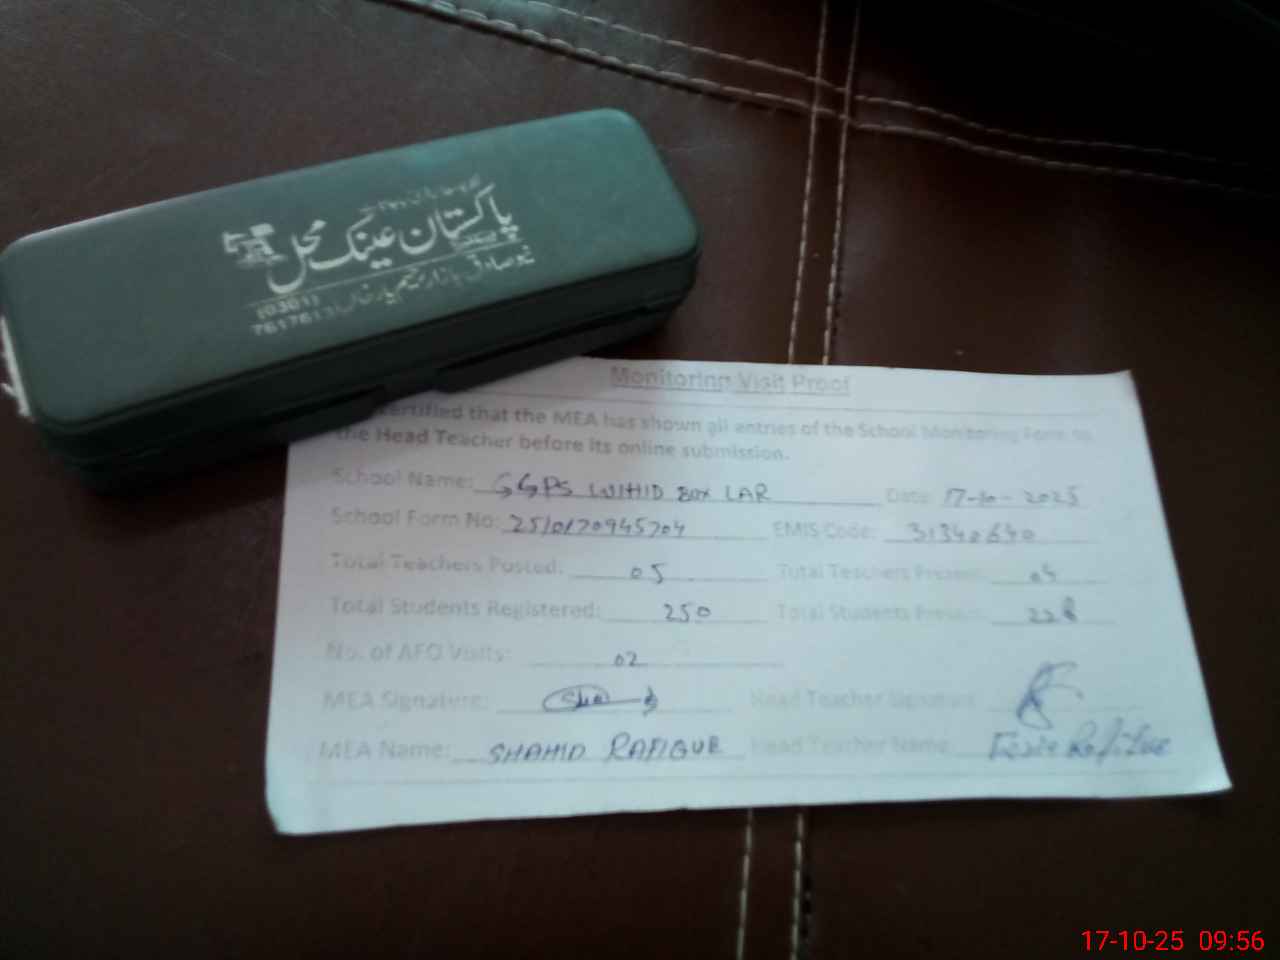 پاکستان عینک محل
نیو صادق بازار رحیم یار خاں
(0301)
7617613
Monitoring Visit Proof
certified that the MEA has shown all entries of the School Monitoring Form to
the Head Teacher before its online submission.
School Name: GGPS WAHID BOX LAR Date: 17-10-2025
School Form No: 250170945704 EMIS Code: 31340640
Total Teachers Posted: 05 Total Teachers Present: 05
Total Students Registered: 250 Total Students Present: 228
No. of AFO Visits: 02
MEA Signature: Head Teacher Signature:
MEA Name: SHAHID RAFIQUE Head Teacher Name:
17-10-25 09:56